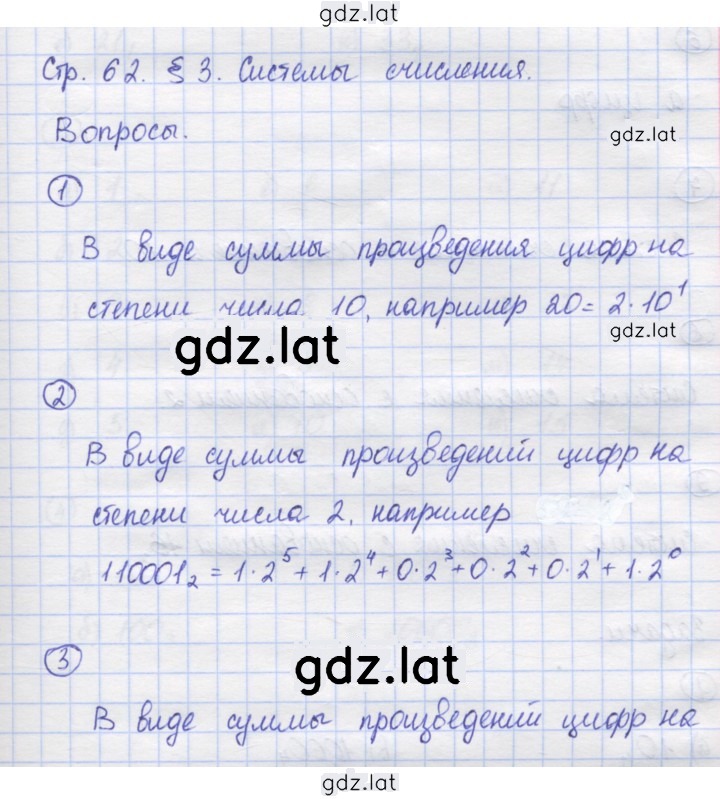 gdz.lat
Стр. 62. § 3. Системы счисления.
Вопросы.
gdz.lat
1
В виде суммы произведения цифр на
степени числа 10, например 20 = 2·10¹
gdz.lat
2
В виде суммы произведений цифр на
степени числа 2, например
110001₂ = 1·2⁵ + 1·2⁴ + 0·2³ + 0·2² + 0·2¹ + 1·2⁰
gdz.lat
3
gdz.lat
В виде суммы произведений цифр на
gdz.lat